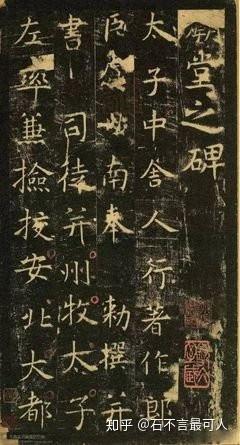 堂之碑
太子中舍人行著作郎
臣虞世南奉 勅撰并
書 司徒并州牧太子
左率兼撿挍安北大都
知乎 @石不言最可人